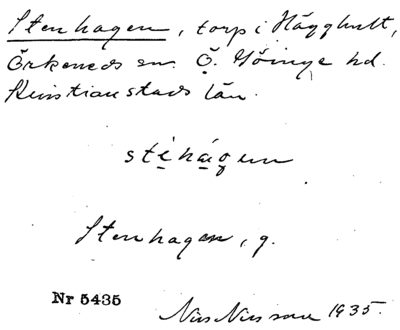 Stenhagen, torp i Hägghult,
Örkeneds sn. Ö. Göinge hd.
Kristianstads län.
stèhágen
Stenhagen, g.
Nr 5435
Nils Nilsson 1935.